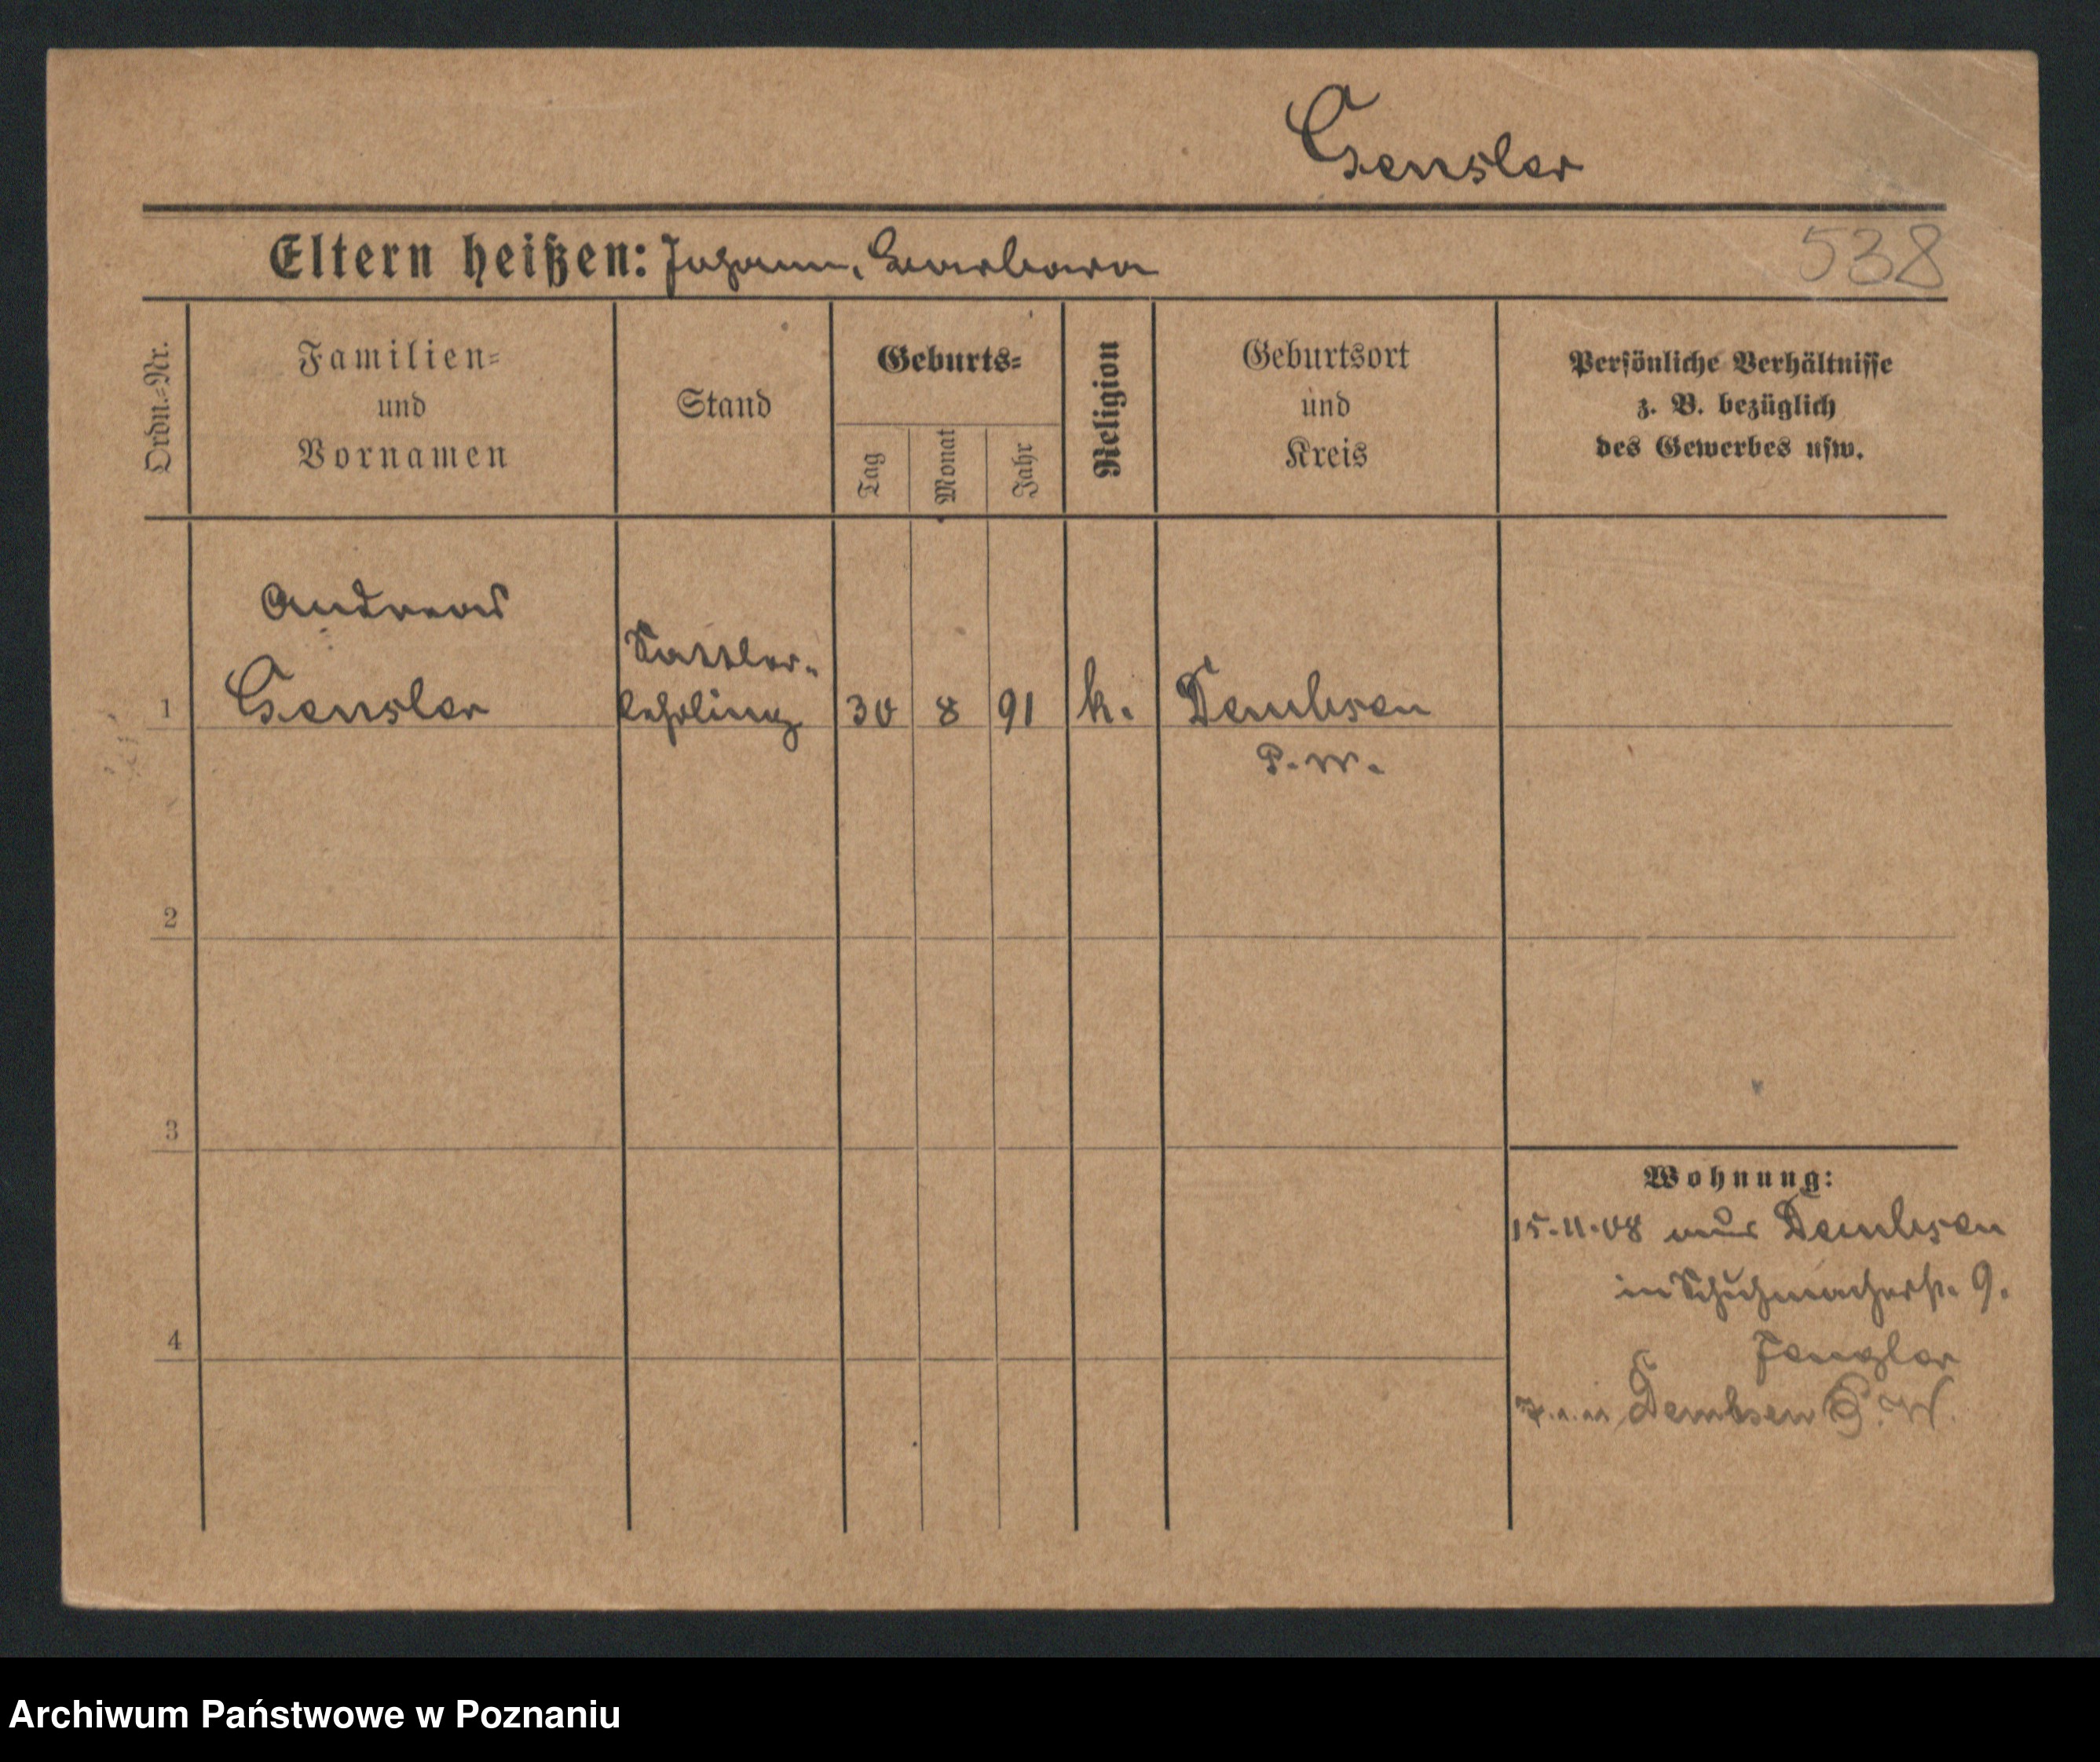 Gensler
Eltern heißen: Johann, Barbara
538
Ordn.-Nr.
Familien-
und
Vornamen
Stand
Geburts-
Tag
Monat
Jahr
Religion
Geburtsort
und
Kreis
Persönliche Verhältnisse
z. B. bezüglich
des Gewerbes usw.
Andreas
Sattler-
1 Gensler lehrling 30 8 91 k. Dembsen
P. W.
2
3
4
Wohnung:
15.11.08 aus Dembsen
in Schuhmacherstr. 9.
Dembsen P. W.
Archiwum Państwowe w Poznaniu